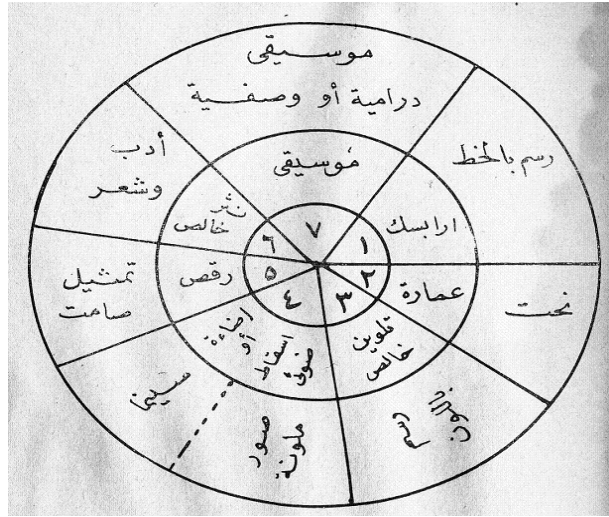 موسيقى
درامية أو وصفية
رسم بالخط
نحت
رسم
باللون
صور
ملونة
سينما
تمثيل
صامت
أدب
وشعر
موسيقى
ارابسك
عمارة
تلوين
خالص
اضاءة
أو
اسقاط
ضوئى
رقص
نثر
خالص
١
٢
٣
٤
٥
٦
٧